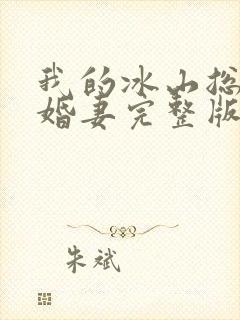 我的冰山总
婚妻完整版
朱斌